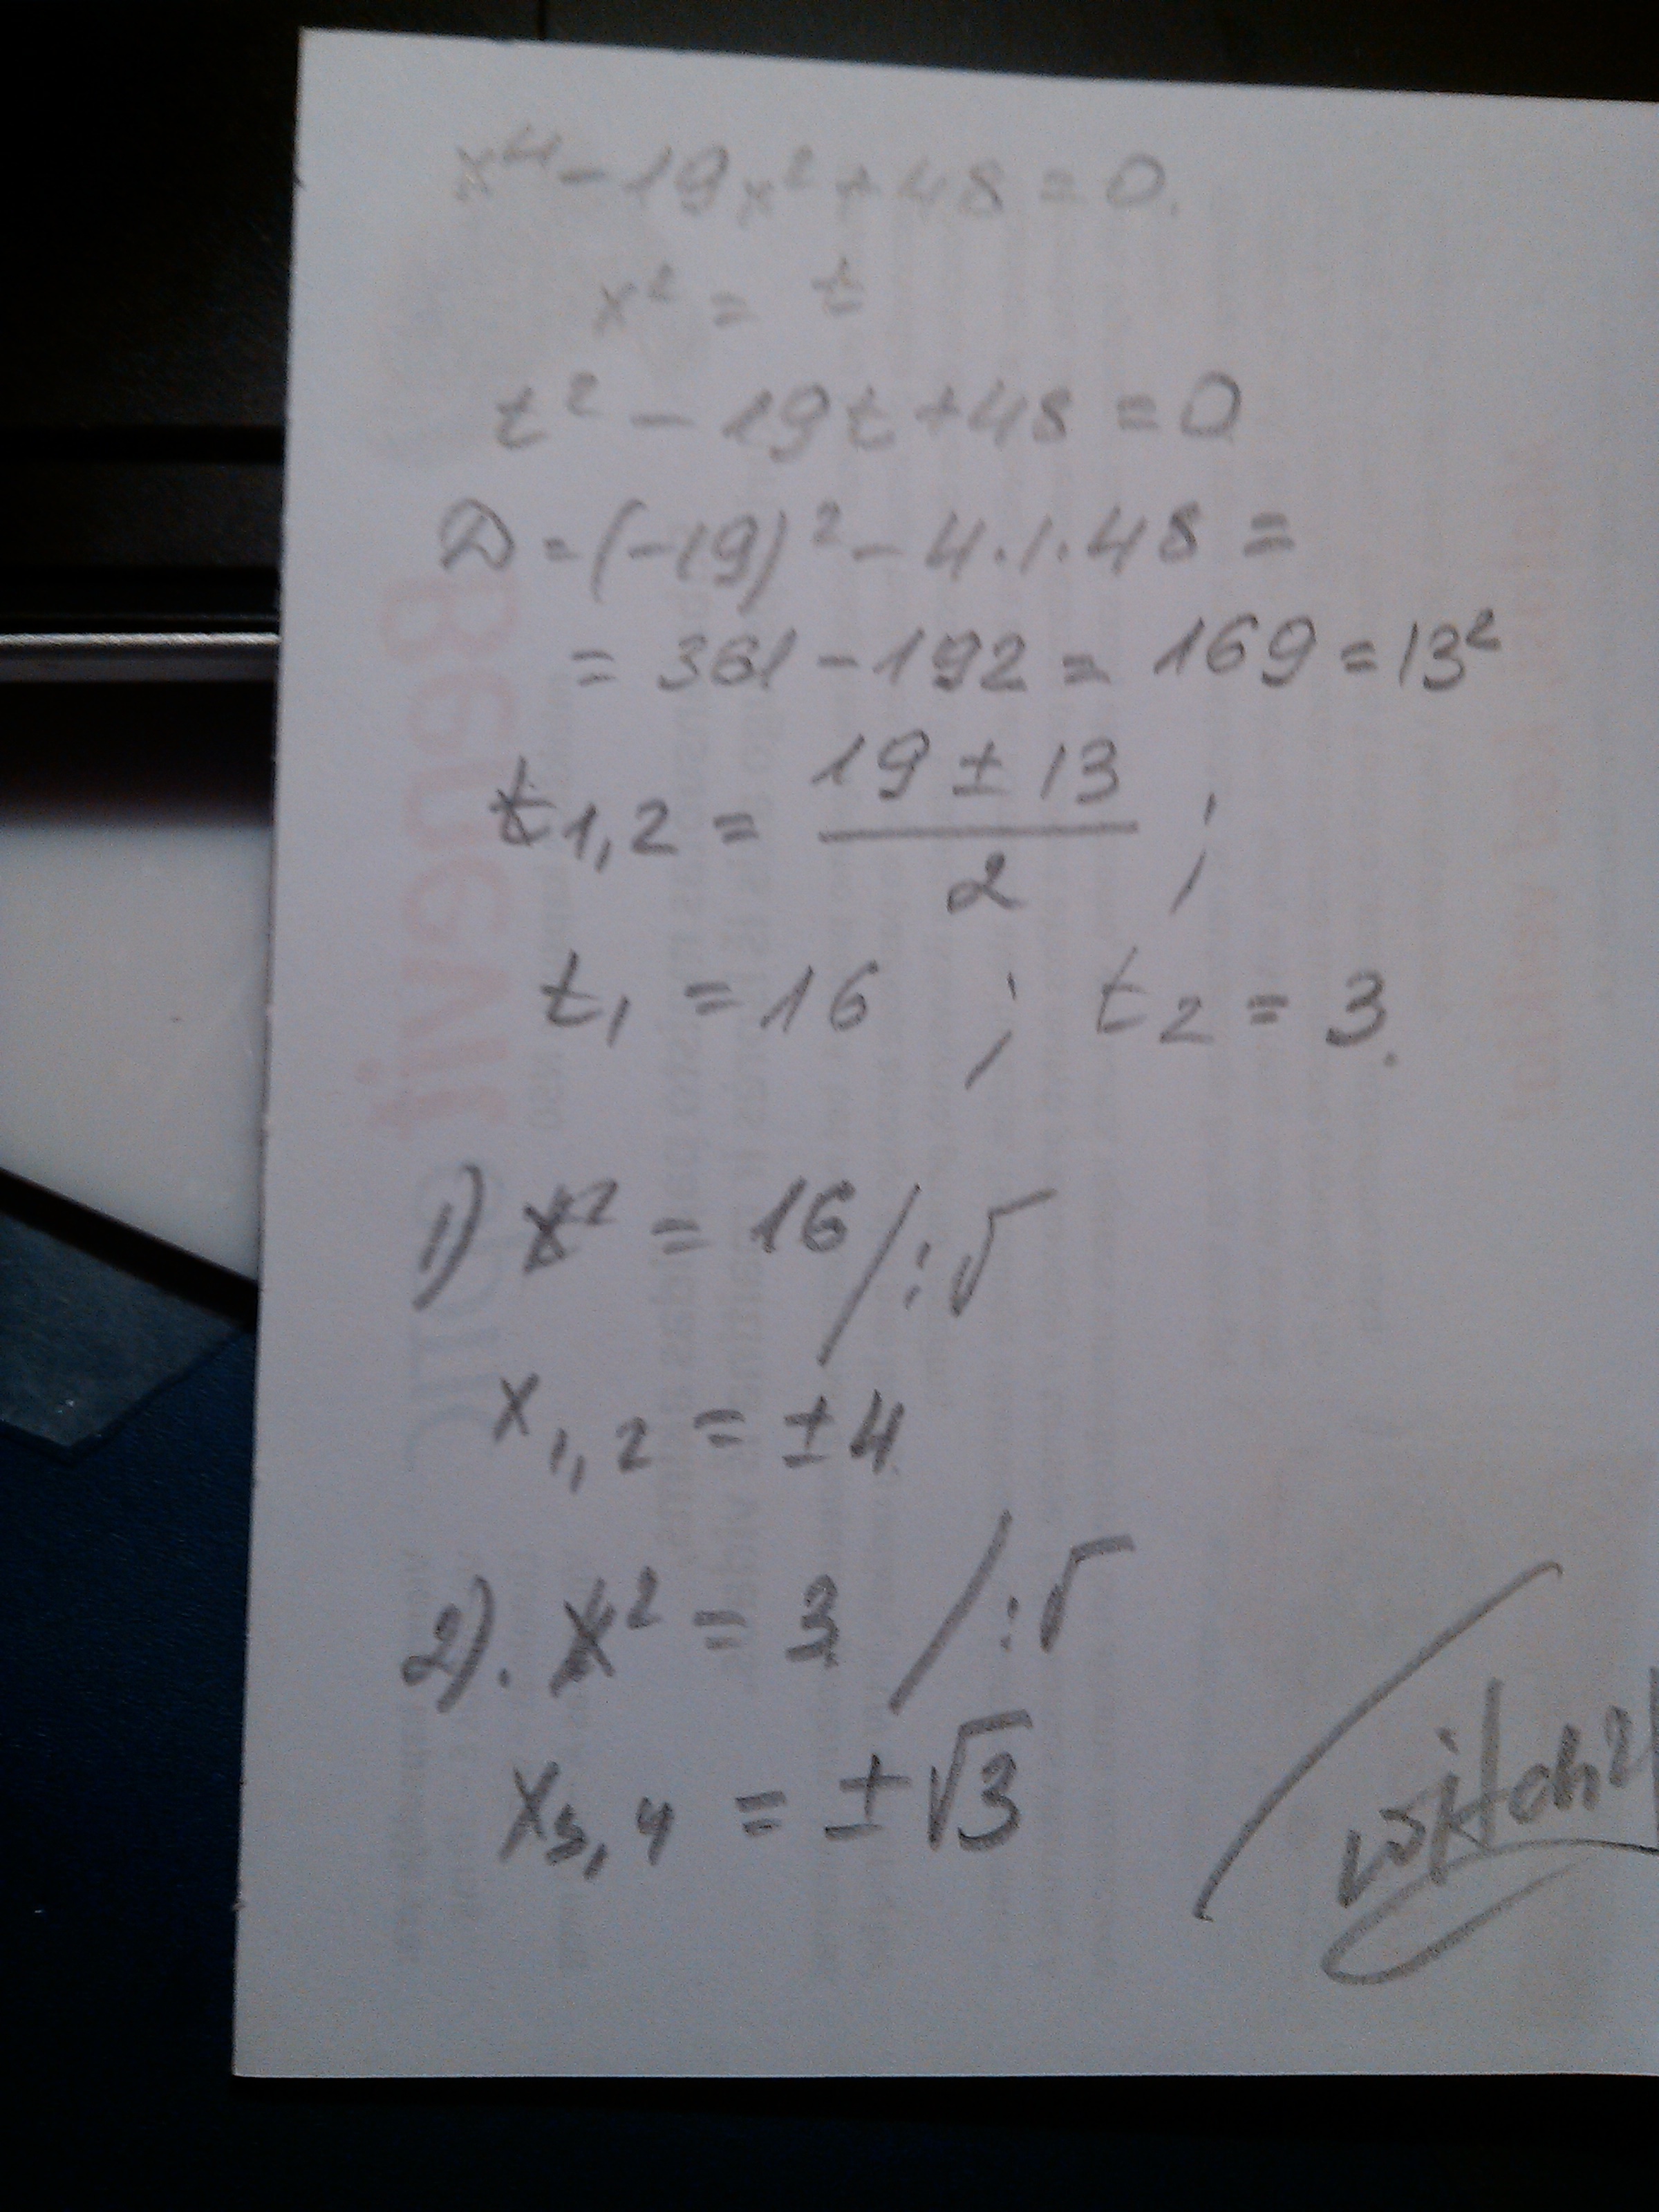 x⁴ - 19x² + 48 = 0.
x² = t
t² - 19t + 48 = 0
D = (-19)² - 4.1.48 =
= 361 - 192 = 169 = 13²
t1,2 = (19 ± 13)/2 ;
t1 = 16 ; t2 = 3.
1) x² = 16 / :√
x1,2 = ±4
2). x² = 3 / :√
x3,4 = ±√3